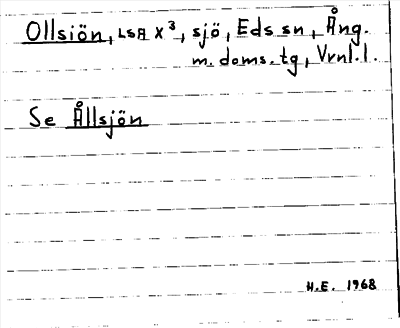 Ollsiön, LSA X³, sjö, Eds sn, Ång.
m. doms. tg, Vrnl. l.
Se Ållsjön
H.E. 1968